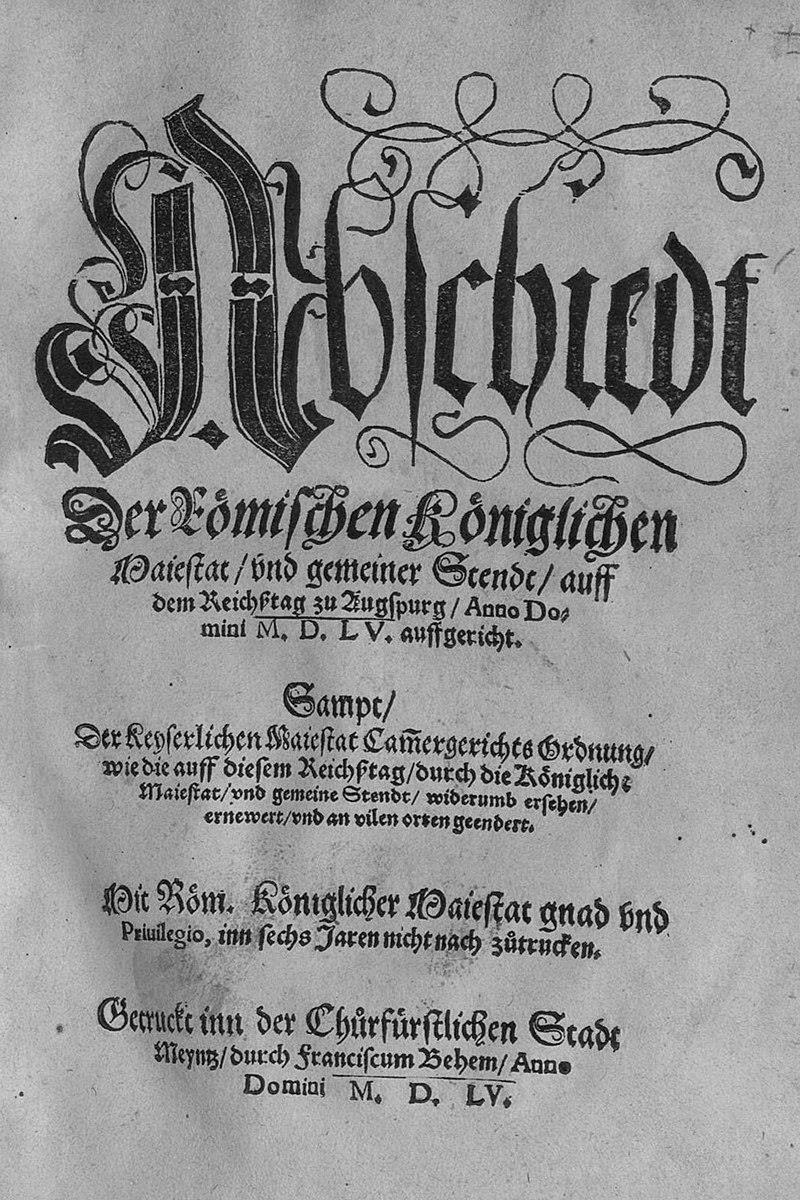 Abschiedt
Der Römischen Königlichen
Maiestat/ vnd gemeiner Stendt/ auff
dem Reichßtag zu Augspurg/ Anno Do-
mini M. D. LV. auffgericht.
Sampt/
Der Keyserlichen Maiestat Cam̄ergerichts Ordnung/
wie die auff diesem Reichßtag/ durch die Königlich-
Maiestat/ vnd gemeine Stendt/ widerumb ersehen/
ernewert/ vnd an vilen orten geendert.
Mit Röm. Königlicher Maiestat gnad vnd
Priuilegio, inn sechs Jaren nicht nach zůtrucken.
Getruckt inn der Chůrfürstlichen Stadt
Meyntz/ durch Franciscum Behem/ Anno
Domini M. D. LV.